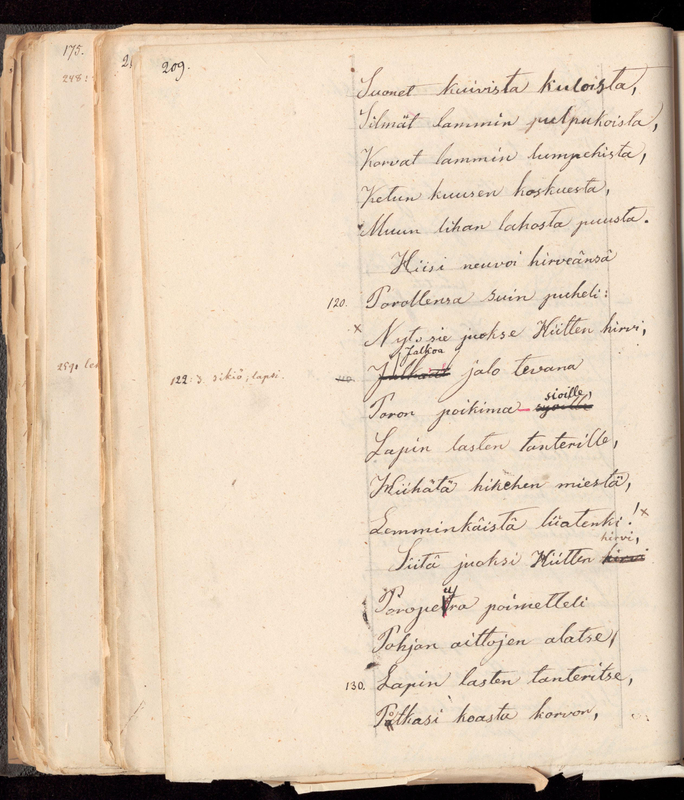 175.
248:
2
209.
Suonet kuivista kuloista,
Silmät lammin pulpukoista,
Korvat lammin lumpehista,
Ketun kuusen koskuesta,
Muun lihan lahosta puusta.
Hiisi neuvoi hirveänsä
120. Porollensa suin puheli:
x Nyt sie juokse Hiitten hirvi,
Jalkoa
122: 3 sikiö; lapsi. jalo tevana
sioille,
Poron poikima
Lapin lasten tanterille,
Hiihätä hikehen miestä,
Lemminkäistä liiatenki! x
hirvi,
Siitä juoksi Hiitten hirvi
Poropeura poimetteli
Pohjan aittojen alatse,
130. Lapin lasten tanteritse,
Potkasi koasta korvon,